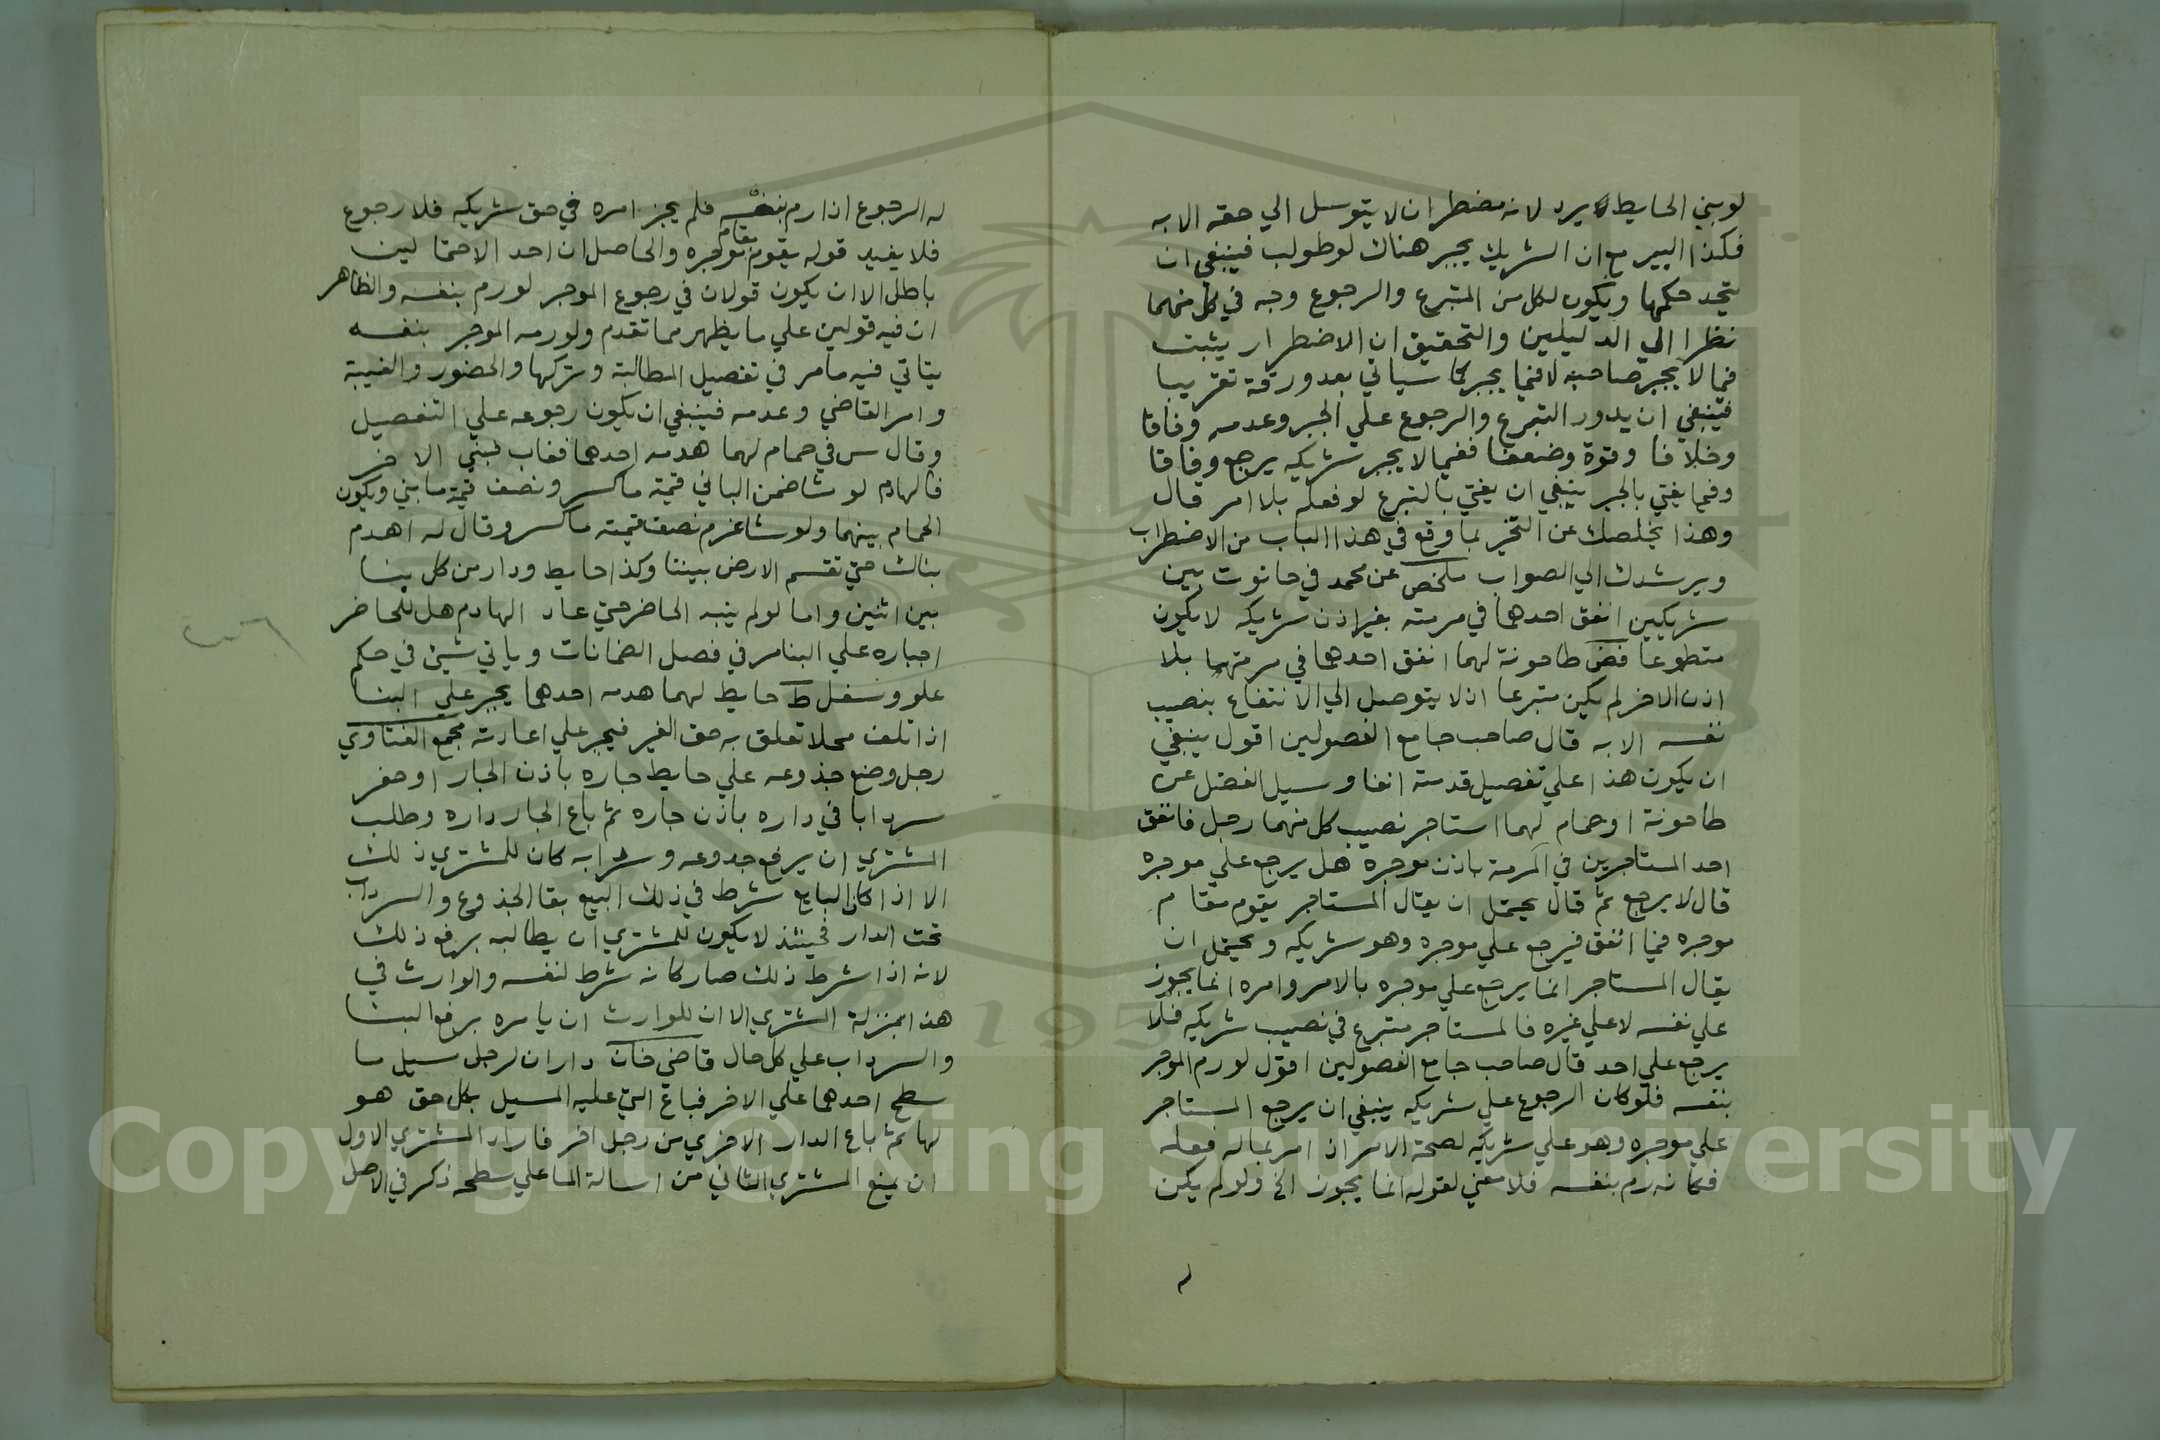 لو بني الحايط لا يرد لانه مضطر ان لا يتوسل الي حقه الا به
فكذا البير مع ان الشريك يجبر هناك لو طولب فينبغي ان
يتحد حكمها ويكون لكل من المتبرع والرجوع وجه في كل منهما
نظرا الي الدليلين والتحقيق ان الاضطرار يثبت
فيما لا يجبر صاحبه لا فيما يجبر كما سياتي بعد ورقة تقريبا
فينبغي ان يدور التبرع والرجوع علي الجبر وعدمه وفاقا
وخلافا وقوة وضعفا ففيما لا يجبر شريكه يرجع وفاقا
وفيما يفتي بالجبر ينبغي ان يفتي بالتبرع لو فعله بلا امر قال
وهذا يخلصك عن التخير بما وقع في هذا الباب من الاضطراب
ويرشدك الي الصواب ملخص عن محمد في حانوت بين
شريكين انفق احدهما في مرمته بغير اذن شريكه لا يكون
متطوعا فض طاحونة لهما انفق احدهما في مرمتها بلا
اذن الاخر لم يكن متبرعا اذ لا يتوصل الي الانتفاع بنصيب
نفسه الا به قال صاحب جامع الفصولين اقول ينبغي
ان يكون هذا علي تفصيل قدمته انفا وسيل الفضل عن
طاحونة او حمام لهما استاجر نصيب كل منهما رجل فانفق
احد المستاجرين في المرمة باذن موجره هل يرجع علي موجره
قال لا يرجع ثم قال يحتمل ان يقال المستاجر يقوم مقام
موجره فيما انفق فيرجع علي موجره وهو شريكه ويحتمل ان
يقال المستاجر انما يرجع علي موجره بالامر وامره انما يجوز
علي نفسه لا علي غيره فالمستاجر متبرع في نصيب شريكه فلا
يرجع علي احد قال صاحب جامع الفصولين اقول لو رم الموجر
بنفسه فلو كان الرجوع علي شريكه ينبغي ان يرجع المستاجر
علي موجره وهو علي شريكه لصحة الامر اذ امر بما له فعله
فكانه رم بنفسه فلا معني لقوله انما يجوز الخ ولو لم يكن
له الرجوع اذا رم بنفسه فلم يجز امره في حق شريكه فلا رجوع
فلا يفيد قوله يقوم مقام موجره والحاصل ان احد الاحتمالين
باطل الا ان يكون قولان في رجوع الموجر لو رم بنفسه والظاهر
ان فيه قولين علي ما يظهر مما تقدم ولو رمه الموجر بنفسه
يتاتي فيه ما مر في تفصيل المطالبة وتركها والحضور والغيبة
وامر القاضي وعدمه فينبغي ان يكون رجوعه علي التفصيل
وقال س في حمام لهما هدمه احدهما فغاب فبني الاخر
فالهادم لو شا ضمن الباني قيمة ما كسر ونصف قيمة ما بني ويكون
الحمام بينهما ولو شا غرم نصف قيمته ما كسر وقال له اهدم
بناك حتي نقسم الارض بيننا وكذا حايط ودار من كل بنا
بين اثنين واما لو لم يبنه الحاضر حتي عاد الهادم هل للحاضر
اجباره علي البنا مر في فصل الضمانات وياتي شيئ في حكم
علو وسفل ط حايط لهما هدمه احدهما يجبر علي البنا
اذا تلف محلا تعلق به حق الغير فيجبر علي اعادته مجمع الفتاوي
رجل وضع جذوعه علي حايط جاره باذن الجار او حفر
سردابا في داره باذن جاره ثم باع الجار داره وطلب
المشتري ان يرفع جدوعه وسردابه كان للمشتري ذلك
الا اذا كان البايع شرط في ذلك البيع بقا الجذوع والسرداب
تحت الدار فحينئذ لا يكون للمشتري ان يطالبه برفع ذلك
لانه اذا شرط ذلك صار كانه شرط لنفسه والوارث في
هذا بمنزلة المشتري الا ان للوارث ان يامره برفع البنا
والسرداب علي كل حال قاضي خان داران لرجل سيل ما
سطح احدهما علي الاخر فباع التي عليه المسيل بكل حق هو
لها ثم باع الدار الاخري من رجل اخر فاراد المشتري الاول
ان يمنع المشتري الثاني من اسالة الما علي سطحه ذكر في الاصل
Copyright © King Saud University
195